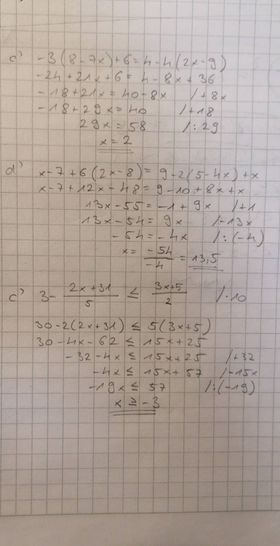 c) -3(8-7x)+6=4-4(2x-9)
-24+21x+6=4-8x+36
-18+21x=40-8x /+8x
-18+29x=40 /+18
29x=58 /:29
x=2
d) x-7+6(2x-8)=9-2(5-4x)+x
x-7+12x-48=9-10+8x+x
13x-55=-1+9x /+1
13x-54=9x /-13x
-54=-4x /:(-4)
x=-54/-4=13,5
c) 3-(2x+31)/5≤(3x+5)/2 /·10
30-2(2x+31)≤5(3x+5)
30-4x-62≤15x+25
-32-4x≤15x+25 /+32
-4x≤15x+57 /-15x
-19x≤57 /:(-19)
x≥-3